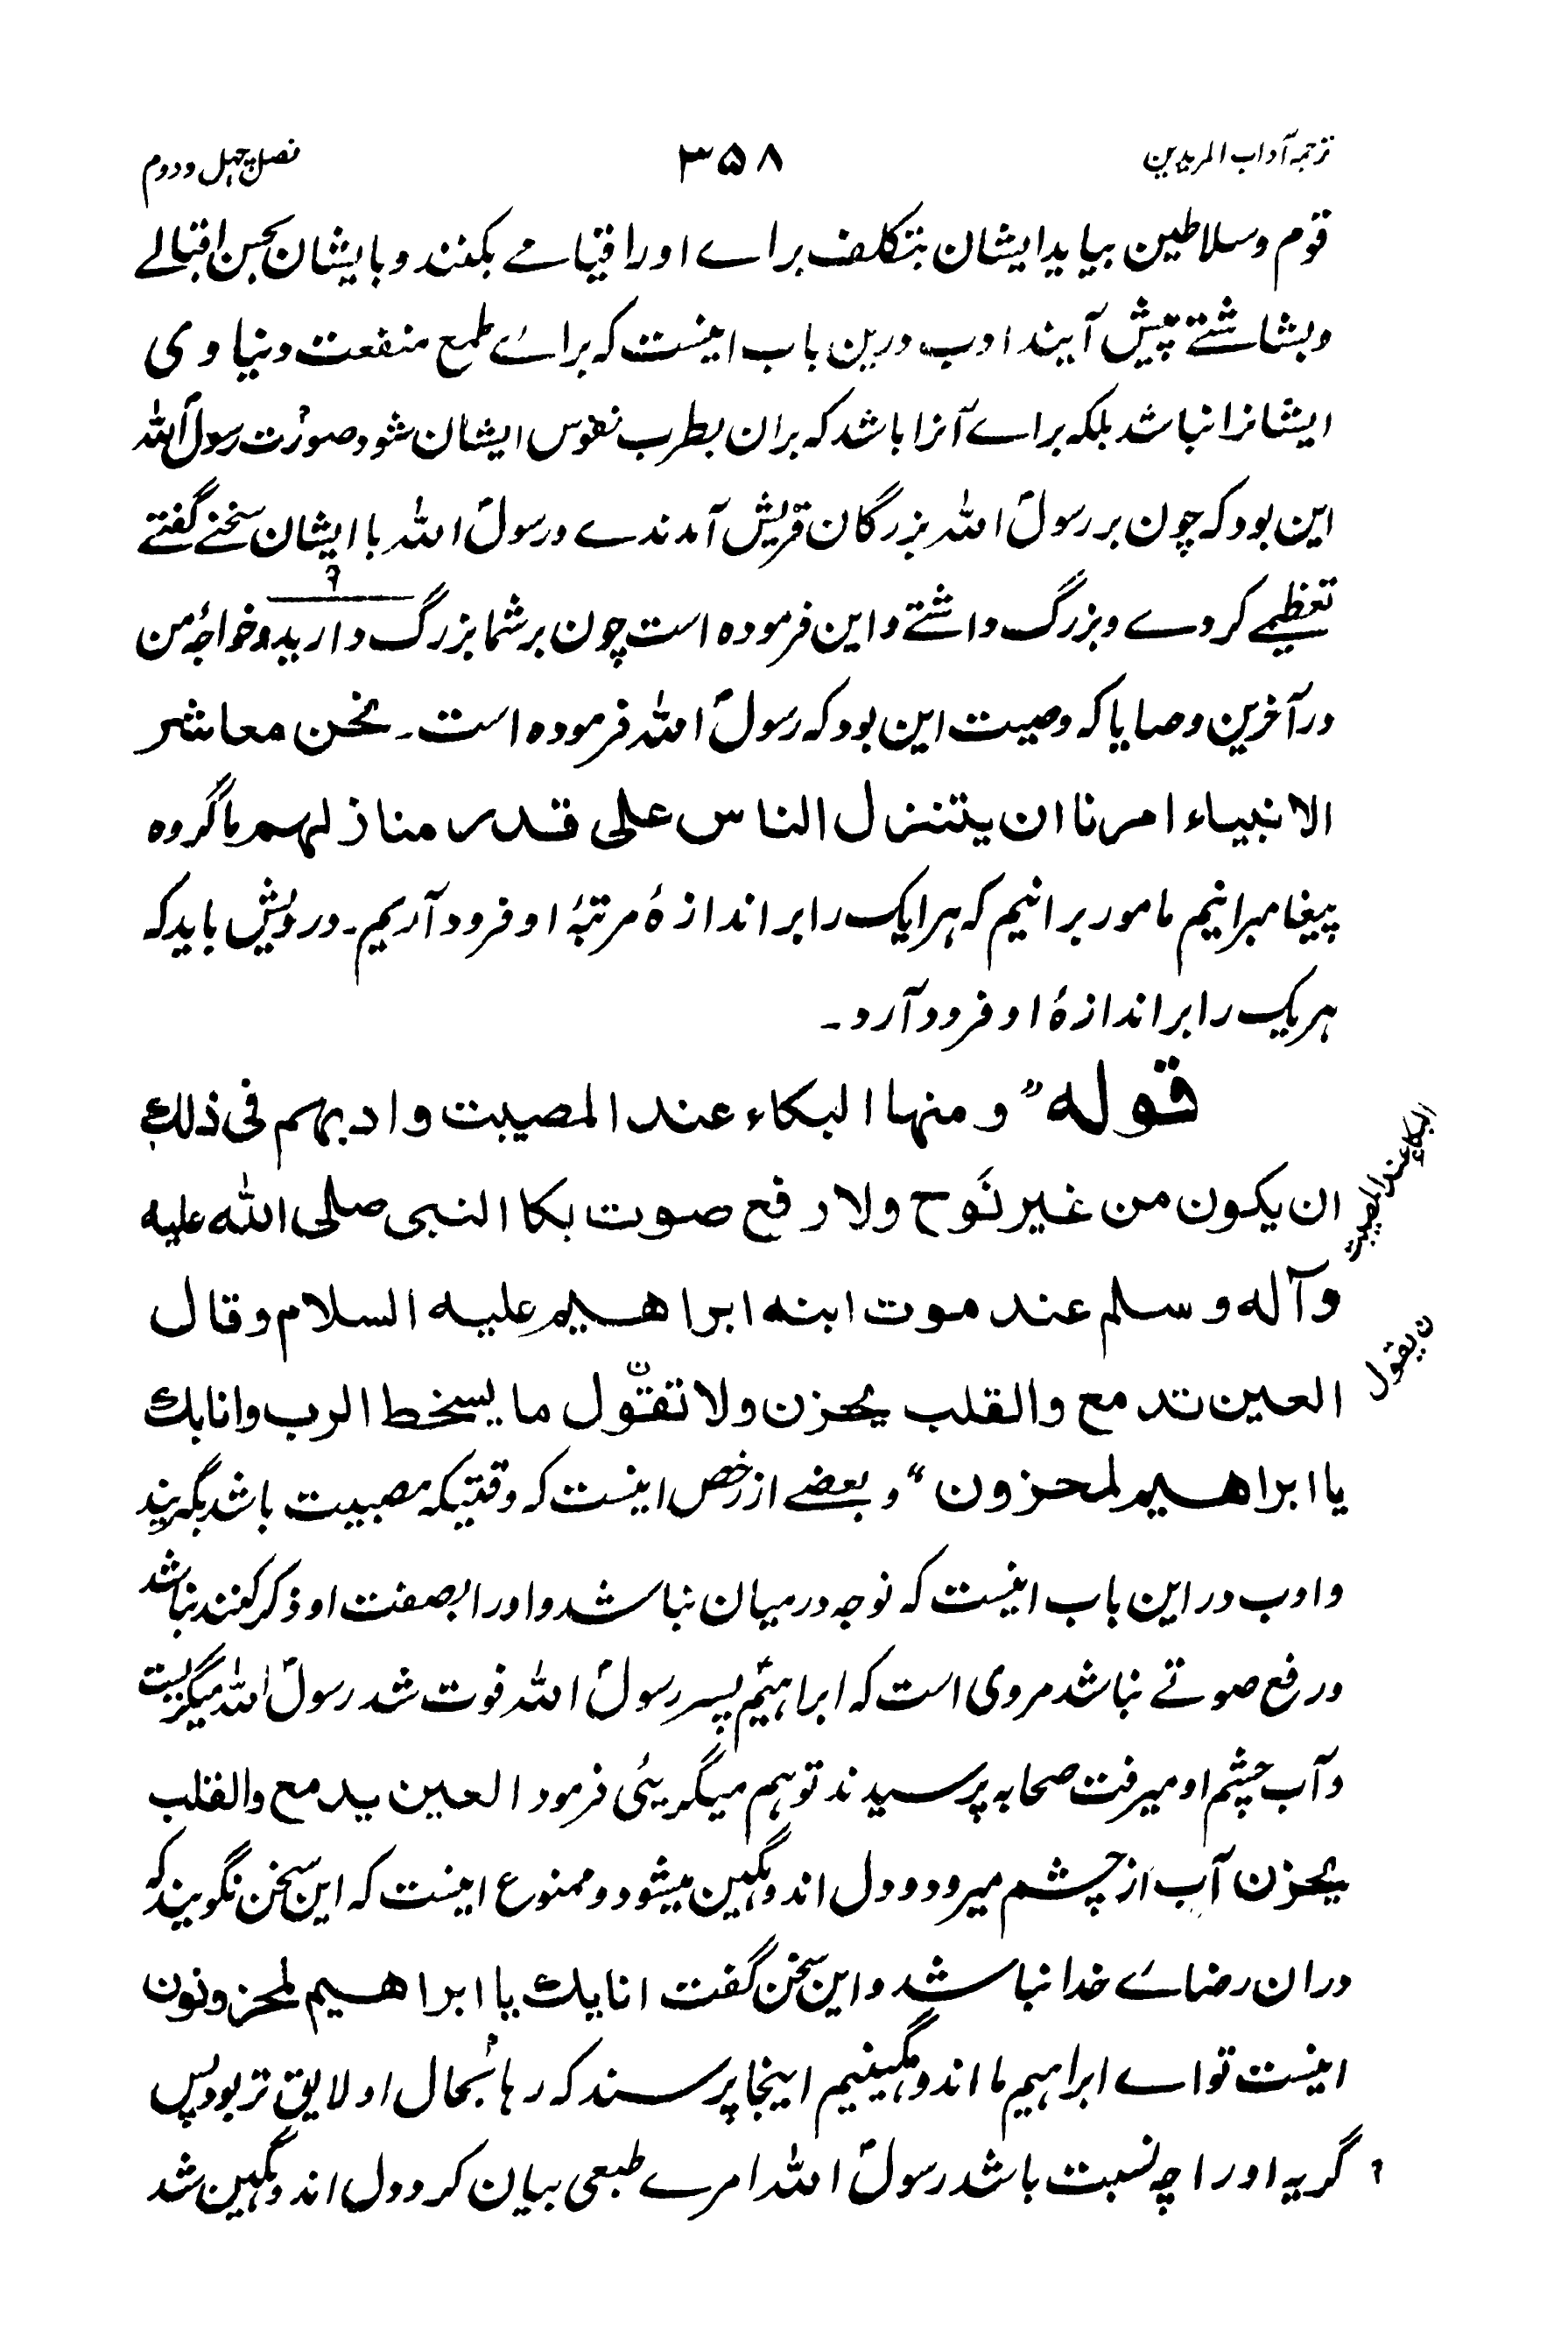 ترجمہ آداب المریدین
۳۵۸
فصل چہل و دوم
قوم و سلاطین بیاید ایشان بتکلف براے او را قیامے بکنند و بایشان بحسن اقبالے
و بشاشتے پیش آیند ادب درین باب اینست کہ براے طمع منفعت دنیاوی
ایشانرا نباشد بلکہ براے آنرا باشد کہ بران بطرب نفوس ایشان شود صورت رسولؐ اللہ
این بود کہ چون بر رسولؐ اللہ بزرگان قریش آمدندے و رسولؐ اللہ با ایشان سخنے گفتے
تعظیمے کردے و بزرگ داشتے و این فرمودہ است چون بر شما بزرگ دارید و خواجۂ من
در آخرین وصایا کہ وصیت این بود کہ رسولؐ اللہ فرمودہ است۔ نحن معاشر
الانبیاء امرنا ان یتنزل الناس علی قدر منازلہم ما گروہ
پیغامبرانیم مامور برانیم کہ ہر ایک را بر اندازۂ مرتبۂ او فرود آریم۔ درویش باید کہ
ہر یک را بر اندازۂ او فرود آرد۔
قوله ”و منها البکاء عند المصیبت و ادبهم فی ذلك
ان یکون من غیر نَوح ولا رفع صوت بکا النبی صلی الله علیه
وآله وسلم عند موت ابنه ابراهیم علیه السلام وقال
العین تدمع والقلب یحزن ولا تقوّل ما یسخط الرب وانا بك
یا ابراهیم لمحزون“ و بعضے از رخص اینست کہ وقتیکہ مصیبت باشد بگریند
و ادب در این باب اینست کہ نوحہ درمیان نباشد و او را بصفت او ذکر کنند نباشد
و رفع صوتے نباشد مروی است کہ ابراہیمؑ پسر رسولؐ اللہ فوت شد رسولؐ اللہ میگریست
و آب چشم او میرفت صحابہ پرسیدند تو ہم میگریئی فرمود العین یدمع والقلب
یحزن آب از چشم میرود و دل اندوہگین میشود و ممنوع اینست کہ این سخن نگویند کہ
دران رضاے خدا نباشد و این سخن گفت انا بك یا ابراهیم لمحزونون
اینست تو اے ابراہیم ما اندوہگینیم اینجا پرسند کہ رہا بحال او لایق تر بود پس
گریہ او را چہ نسبت باشد رسولؐ اللہ امرے طبعی بیان کرد و دل اندوہگین شد
البکاء عند المصیبت
ن یقول